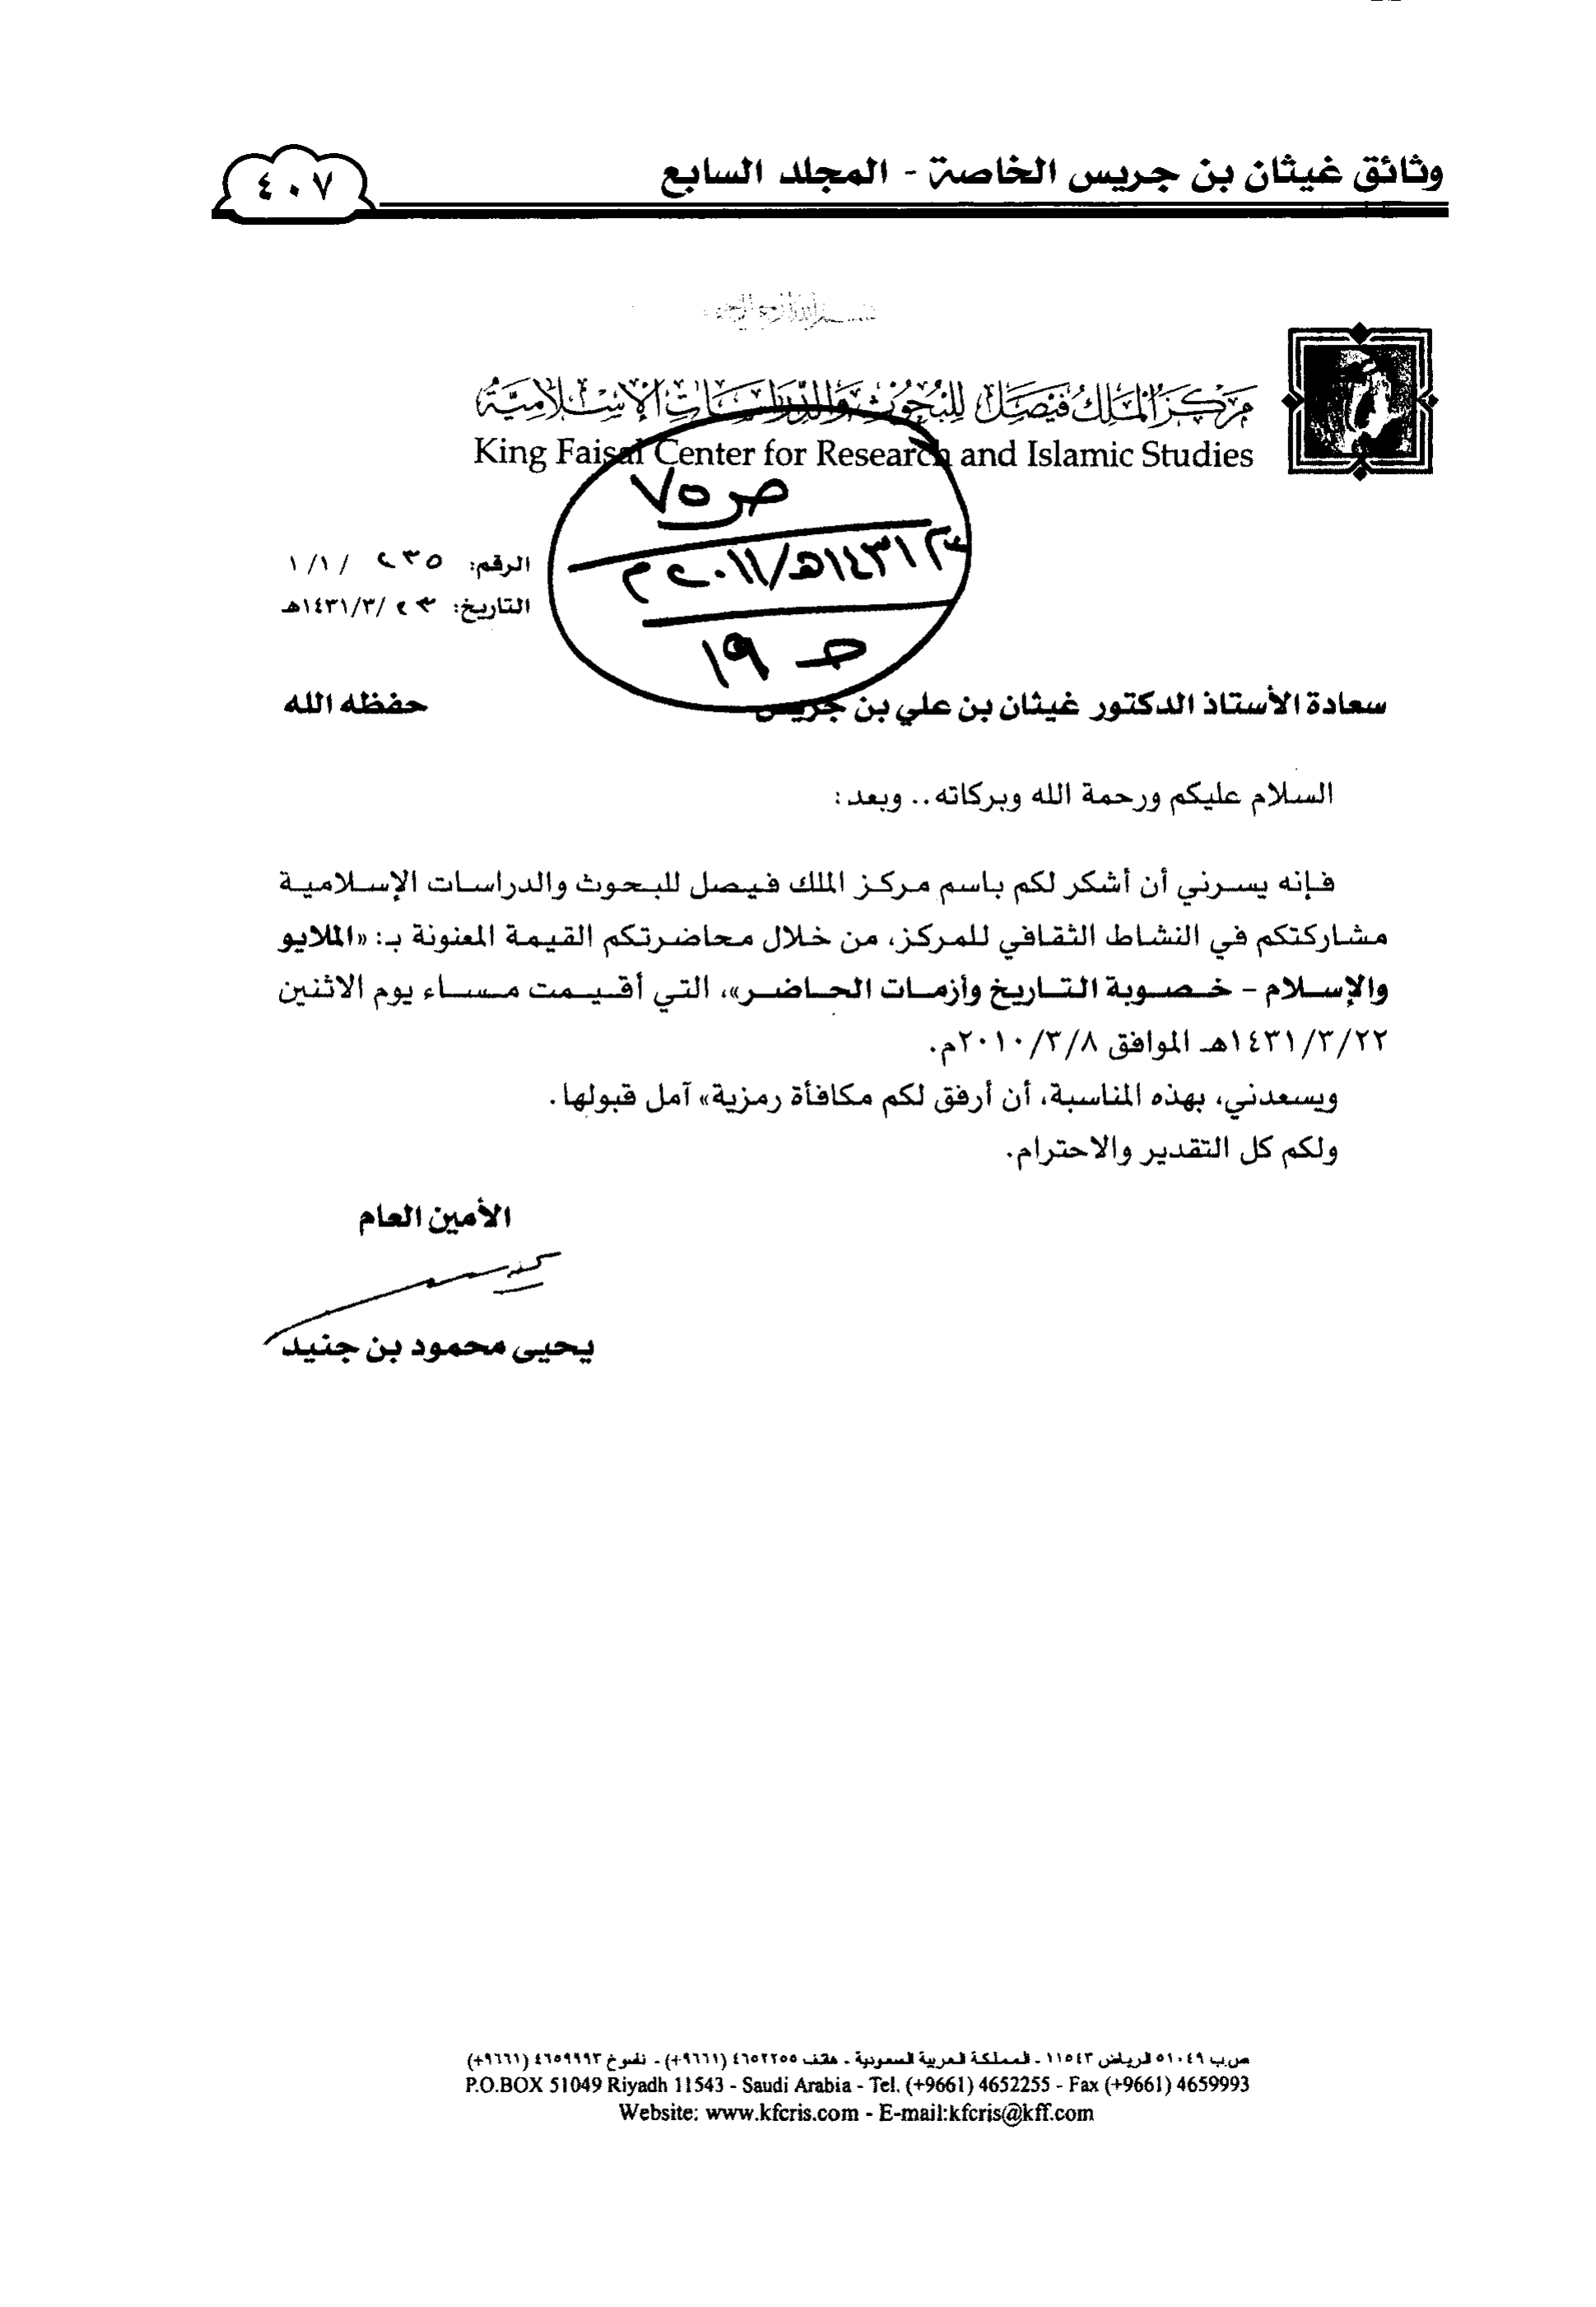 وثائق غيثان بن جريس الخاصة - المجلد السابع
٤٠٧
مركز الملك فيصل للبحوث والدراسات الإسلامية
King Faisal Center for Research and Islamic Studies
ص ٧٥
١٤٣١هـ/٢٠١١م
ج ١٩
الرقم: ٢٣٥ /١/١
التاريخ: ٢٣/٣/١٤٣١هـ
سعادة الأستاذ الدكتور غيثان بن علي بن جريس حفظه الله
السلام عليكم ورحمة الله وبركاته.. وبعد:
فإنه يسرني أن أشكر لكم باسم مركز الملك فيصل للبحوث والدراسات الإسلامية
مشاركتكم في النشاط الثقافي للمركز، من خلال محاضرتكم القيمة المعنونة بـ: «الملايو
والإسلام - خصوبة التاريخ وأزمات الحاضر»، التي أقيمت مساء يوم الاثنين
١٤٣١/٣/٢٢هـ الموافق ٢٠١٠/٣/٨م.
ويسعدني، بهذه المناسبة، أن أرفق لكم مكافأة رمزية» آمل قبولها.
ولكم كل التقدير والاحترام.
الأمين العام
يحيى محمود بن جنيد
ص.ب ٥١٠٤٩ الرياض ١١٥٤٣ - المملكة العربية السعودية - هاتف ٤٦٥٢٢٥٥ (٩٦٦١+) - ناسوخ ٤٦٥٩٩٩٣ (٩٦٦١+)
P.O.BOX 51049 Riyadh 11543 - Saudi Arabia - Tel. (+9661) 4652255 - Fax (+9661) 4659993
Website: www.kfcris.com - E-mail:kfcris@kff.com